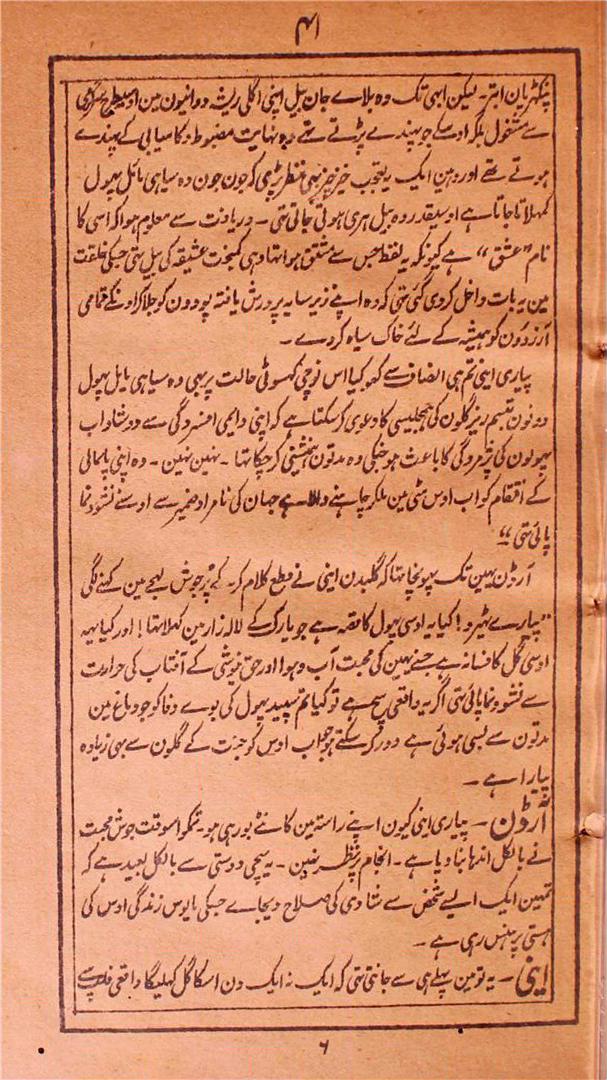 ۴۱
پنکھڑیان ابتر۔ لیکن ابھی تک وہ بلاے جان بیل اپنی اگلی ریشہ دوانیون مین اوسیطرح سرگرمی
سے مشغول بلکہ اوسکے جو پھندے پڑتے تھے وہ نہایت مضبوط و کامیابی کے پھندے
ہوتے تھے اور وہین ایک یہ تعجب خیز چیز بھی نظر پڑی کہ جون جون وہ سیاہی مائل پھول
کمہلاتا جاتا ہے اوسیقدر وہ بیل ہری ہوتی جاتی تھی۔ دریافت سے معلوم ہوا کہ اسی کا
نام "عشق" ہے کیونکہ یہ لفظ جس سے مشتق ہوا تھا وہی کمبخت عشیقہ کی بیل تھی جسکی خلقت
مین یہ بات داخل کردی گئی تھی کہ وہ اپنے زیر سایہ پرورش یافتہ پودون کو جلا کر اونکے تمامی
آرزؤن کو ہمیشہ کے لئے خاک سیاہ کردے۔
پیاری اینی تم ہی انصاف سے کہو کیا اس نوچی کھسوٹی حالت پر بھی وہ سیاہی مایل پھول
دونون تبسم ریز گلون کی ہمجلیسی کا دعوی کرسکتا ہے کہ اپنی دایمی افسردگی سے دو شاداب
پھولون کی پژمردگی کا باعث ہو جنکی وہ مدتون ہمنشینی کرچکا تھا۔ نہین نہین۔ وہ اپنی پامالی
کے انتقام کو اب اوس مٹی مین ملکر چاہنے والا ہے جہان کی نامراد ضمیر سے اوسنے نشو و نما
پائی تھی"
آرڈن یہین تک پہونچا تھا کہ گلبدن اینی نے قطع کلام کرکے پرجوش لہجے مین کہنے لگی
"پیارے ٹھیرو! کیا یہ اوسی پھول کا قصہ ہے جو پارک کے لالہ زار مین کھلا تھا! اور کیا یہہ
اوسی گل کا فسانہ ہے جسنے یہین کی محبت آب و ہوا اور خوشی کے آفتاب کی حرارت
سے نشو و نما پائی تھی اگر یہ واقعی سچ ہے تو کیا تم سپید پھول کی بوے وفا کو جو دماغ مین
مدتون سے بسی ہوئی ہے دور کرسکتے ہو جو اب اوس کو جنت کے گلون سے بھی زیادہ
پیارا ہے۔
آرڈن۔ پیاری اینی کیون اپنے راستہ مین کانٹے بو رہی ہو۔ تمکو اسوقت جوش محبت
نے بالکل اندھا بنا دیا ہے۔ انجام پر نظر نہین۔ یہ سچی دوستی سے بالکل بعید ہے کہ
تمہین ایک ایسے شخص سے شادی کی صلاح دیجاے جسکی مایوس زندگی اوس کی
ہستی پر ہنس رہی ہے۔
اینی۔ یہ تو مین پہلے ہی سے جانتی تھی کہ ایک نہ ایک دن اسکا گل کھلیگا واقعی
۶